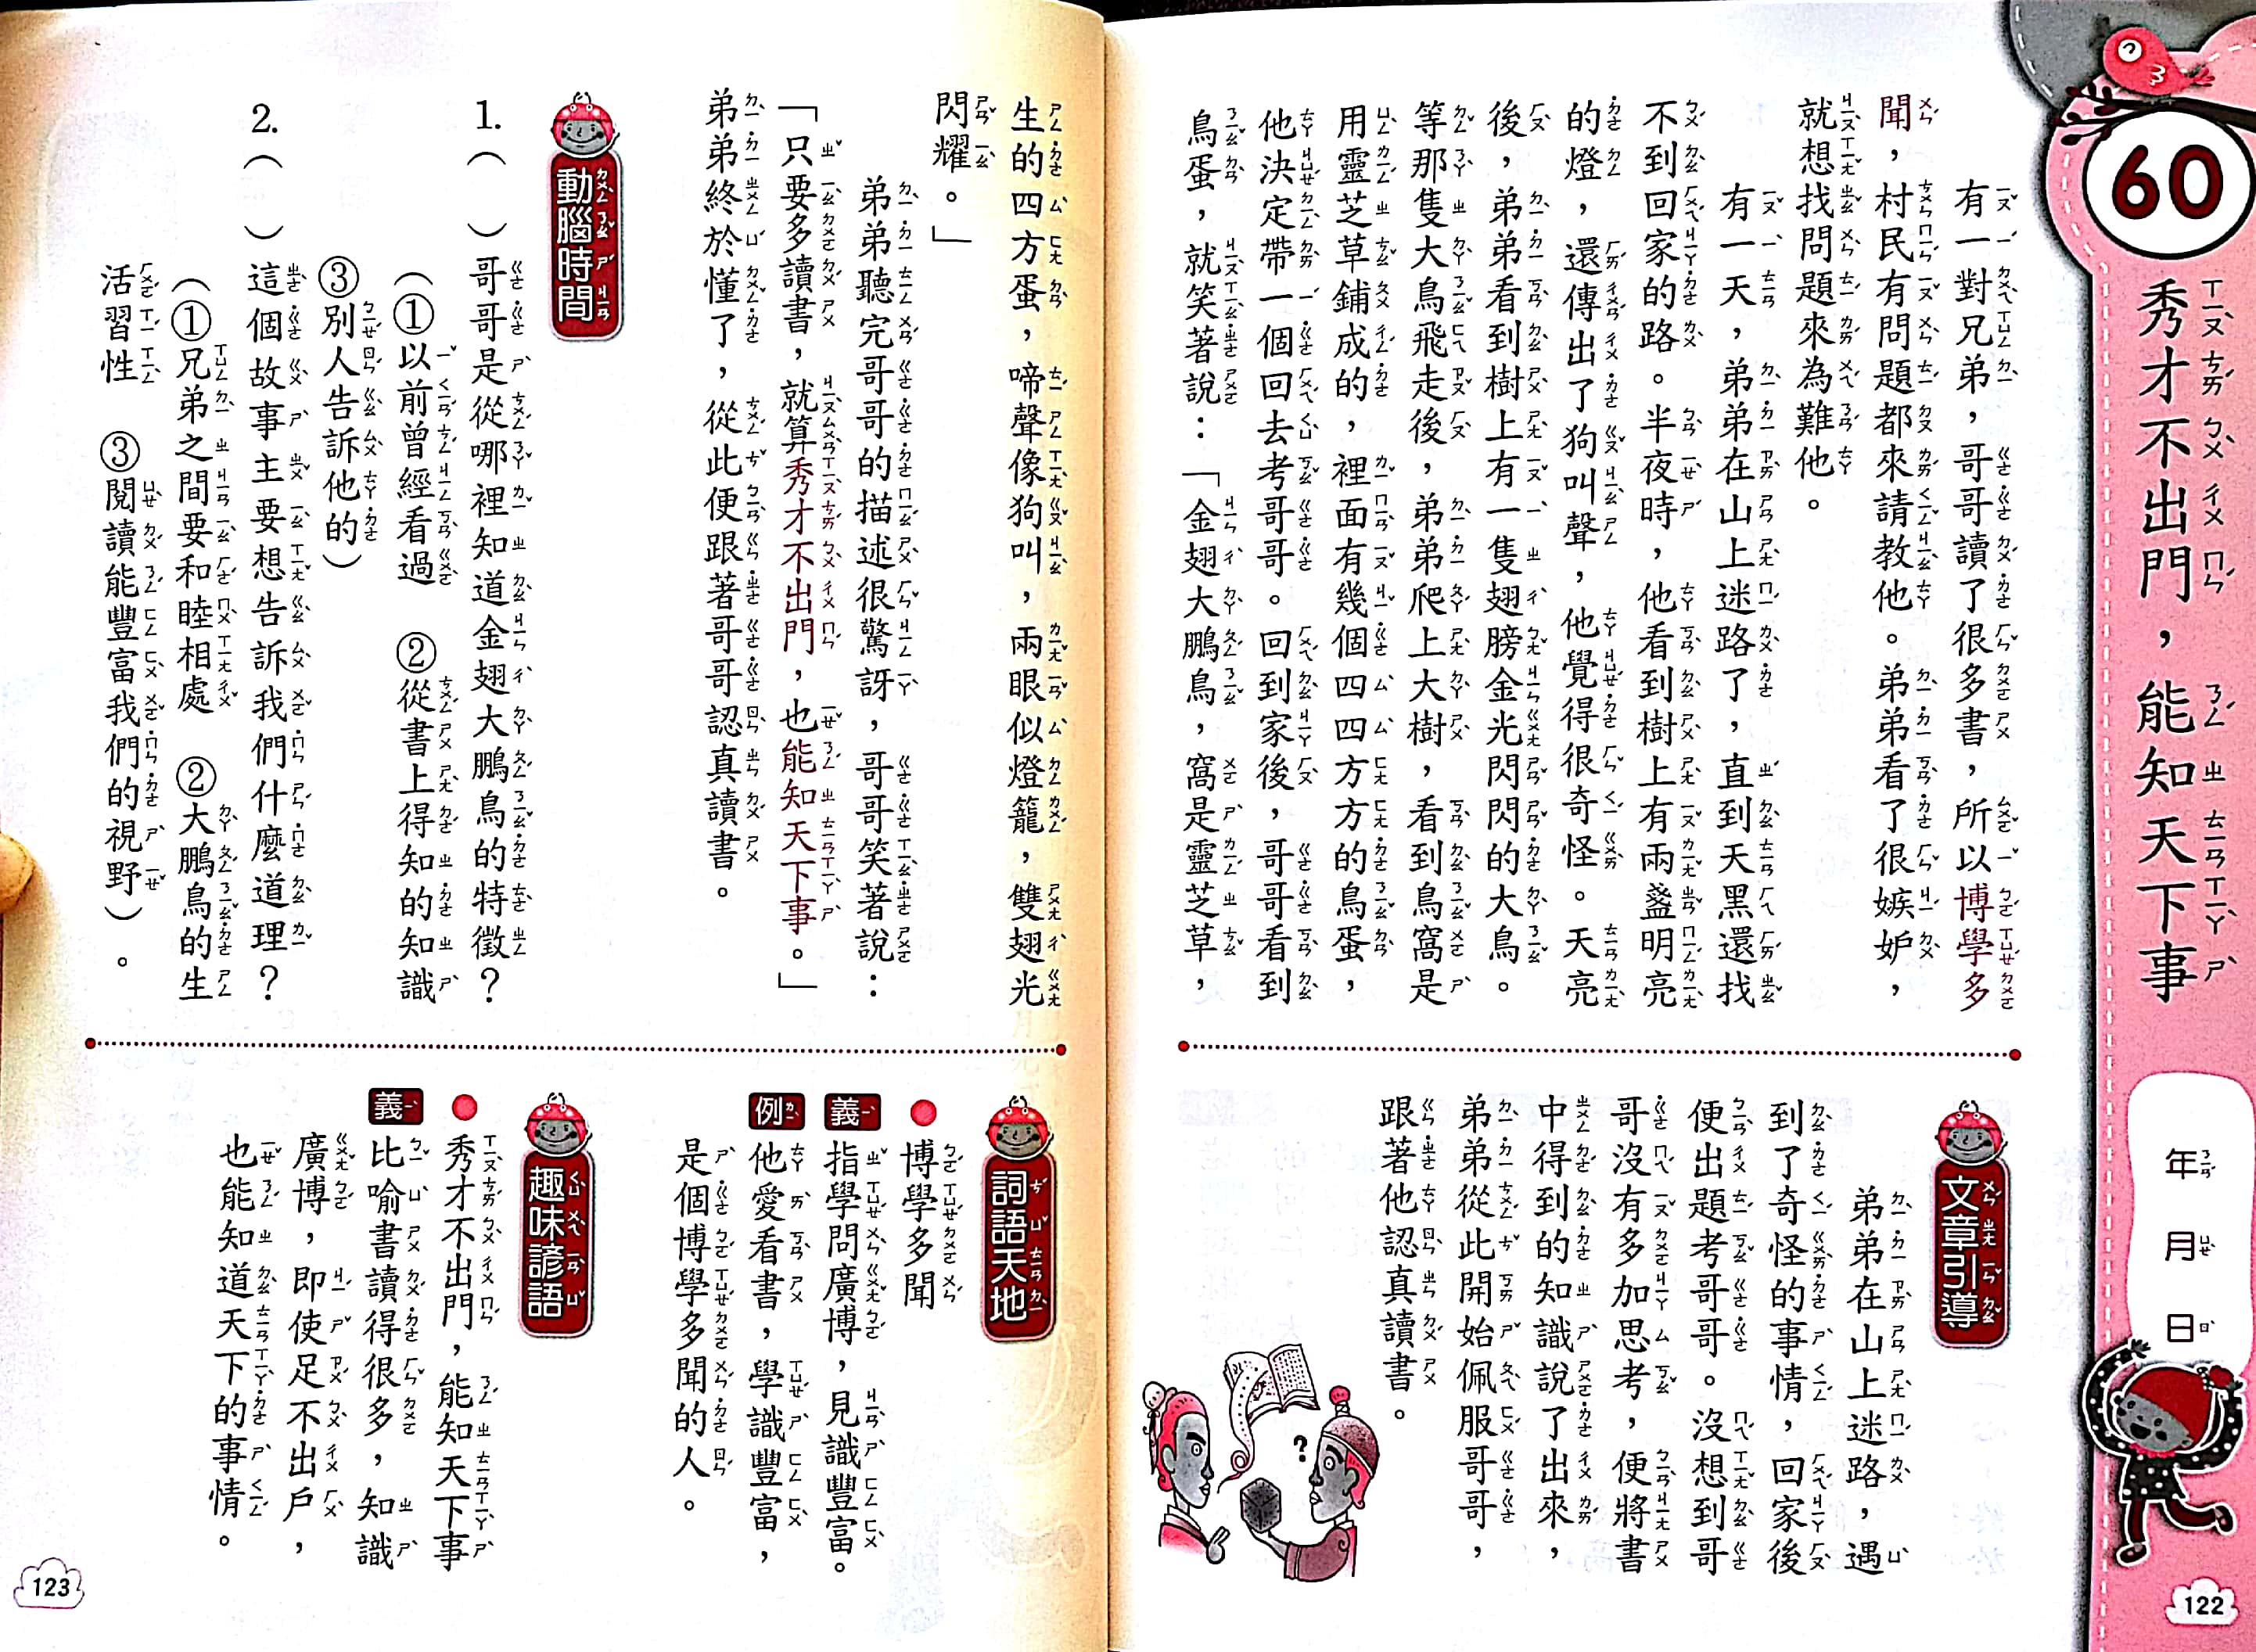 60
秀才不出門，能知天下事
年 月 日
有一對兄弟，哥哥讀了很多書，所以博學多
聞，村民有問題都來請教他。弟弟看了很嫉妒，
就想找問題來為難他。
有一天，弟弟在山上迷路了，直到天黑還找
不到回家的路。半夜時，他看到樹上有兩盞明亮
的燈，還傳出了狗叫聲，他覺得很奇怪。天亮
後，弟弟看到樹上有一隻翅膀金光閃閃的大鳥。
等那隻大鳥飛走後，弟弟爬上大樹，看到鳥窩是
用靈芝草鋪成的，裡面有幾個四四方方的鳥蛋，
他決定帶一個回去考哥哥。回到家後，哥哥看到
鳥蛋，就笑著說：「金翅大鵬鳥，窩是靈芝草，
文章引導
弟弟在山上迷路，遇
到了奇怪的事情，回家後
便出題考哥哥。沒想到哥
哥沒有多加思考，便將書
中得到的知識說了出來，
弟弟從此開始佩服哥哥，
跟著他認真讀書。
?
122
生的四方蛋，啼聲像狗叫，兩眼似燈籠，雙翅光
閃耀。」
弟弟聽完哥哥的描述很驚訝，哥哥笑著說：
「只要多讀書，就算秀才不出門，也能知天下事。」
弟弟終於懂了，從此便跟著哥哥認真讀書。
動腦時間
1.（ ）哥哥是從哪裡知道金翅大鵬鳥的特徵？
（①以前曾經看過 ②從書上得知的知識
③別人告訴他的）
2.（ ）這個故事主要想告訴我們什麼道理？
（①兄弟之間要和睦相處 ②大鵬鳥的生
活習性 ③閱讀能豐富我們的視野）。
詞語天地
博學多聞
義 指學問廣博，見識豐富。
例 他愛看書，學識豐富，
是個博學多聞的人。
趣味諺語
秀才不出門，能知天下事
義 比喻書讀得很多，知識
廣博，即使足不出戶，
也能知道天下的事情。
123